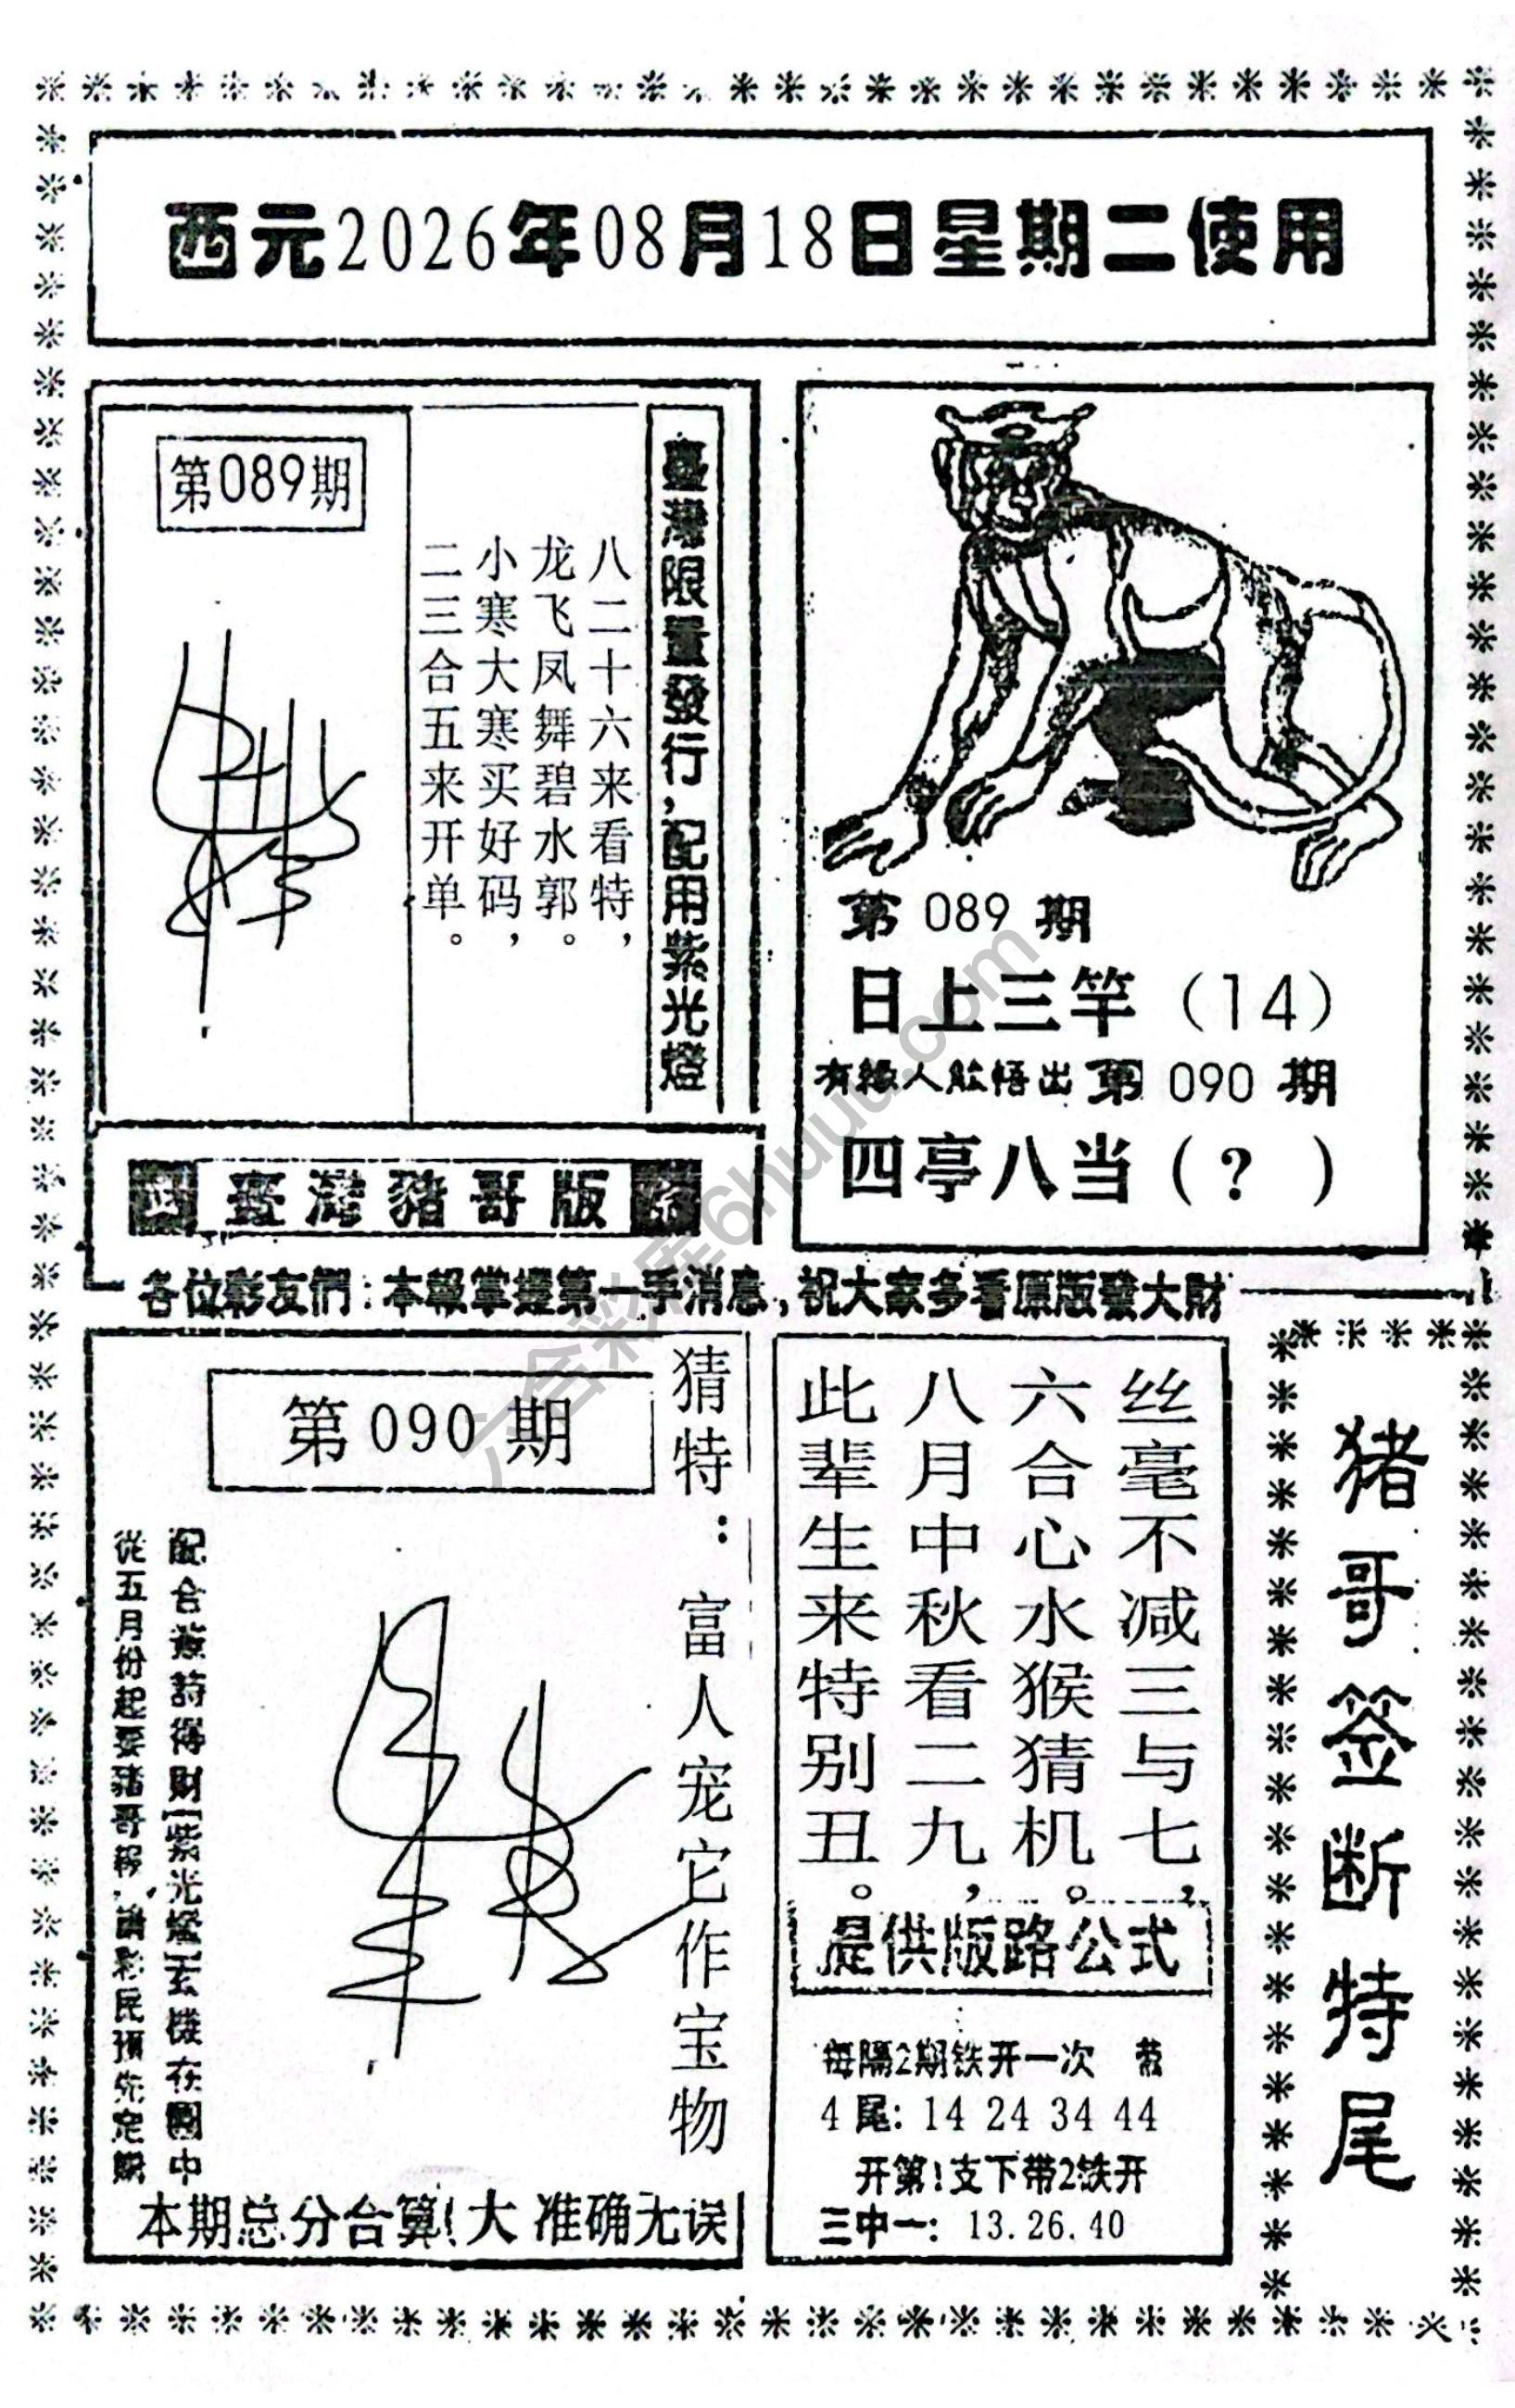 西元2026年08月18日星期二使用
第089期
八二十六来看特，
龙飞凤舞碧水郭。
小寒大寒买好码，
二三合五来开单。
臺灣限量發行，配用紫光燈
第 089 期
日上三竿（14）
有緣人能悟出 第 090 期
四亭八当（？）
臺灣豬哥版
各位彩友們：本報掌握第一手消息，祝大家多看原版發大財
第 090 期
猜特：富人宠它作宝物
從五月份起要豬哥報，請彩民預先定購
本期总分合算(大 准确无误
丝毫不减三与七，
六合心水猴猜机。
八月中秋看二九，
此辈生来特别丑。
提供版路公式
每隔2期铁开一次
4 尾: 14 24 34 44
开第1支下带2铁开
三中一: 13.26.40
猪哥签断特尾
六合彩库6huuu.com